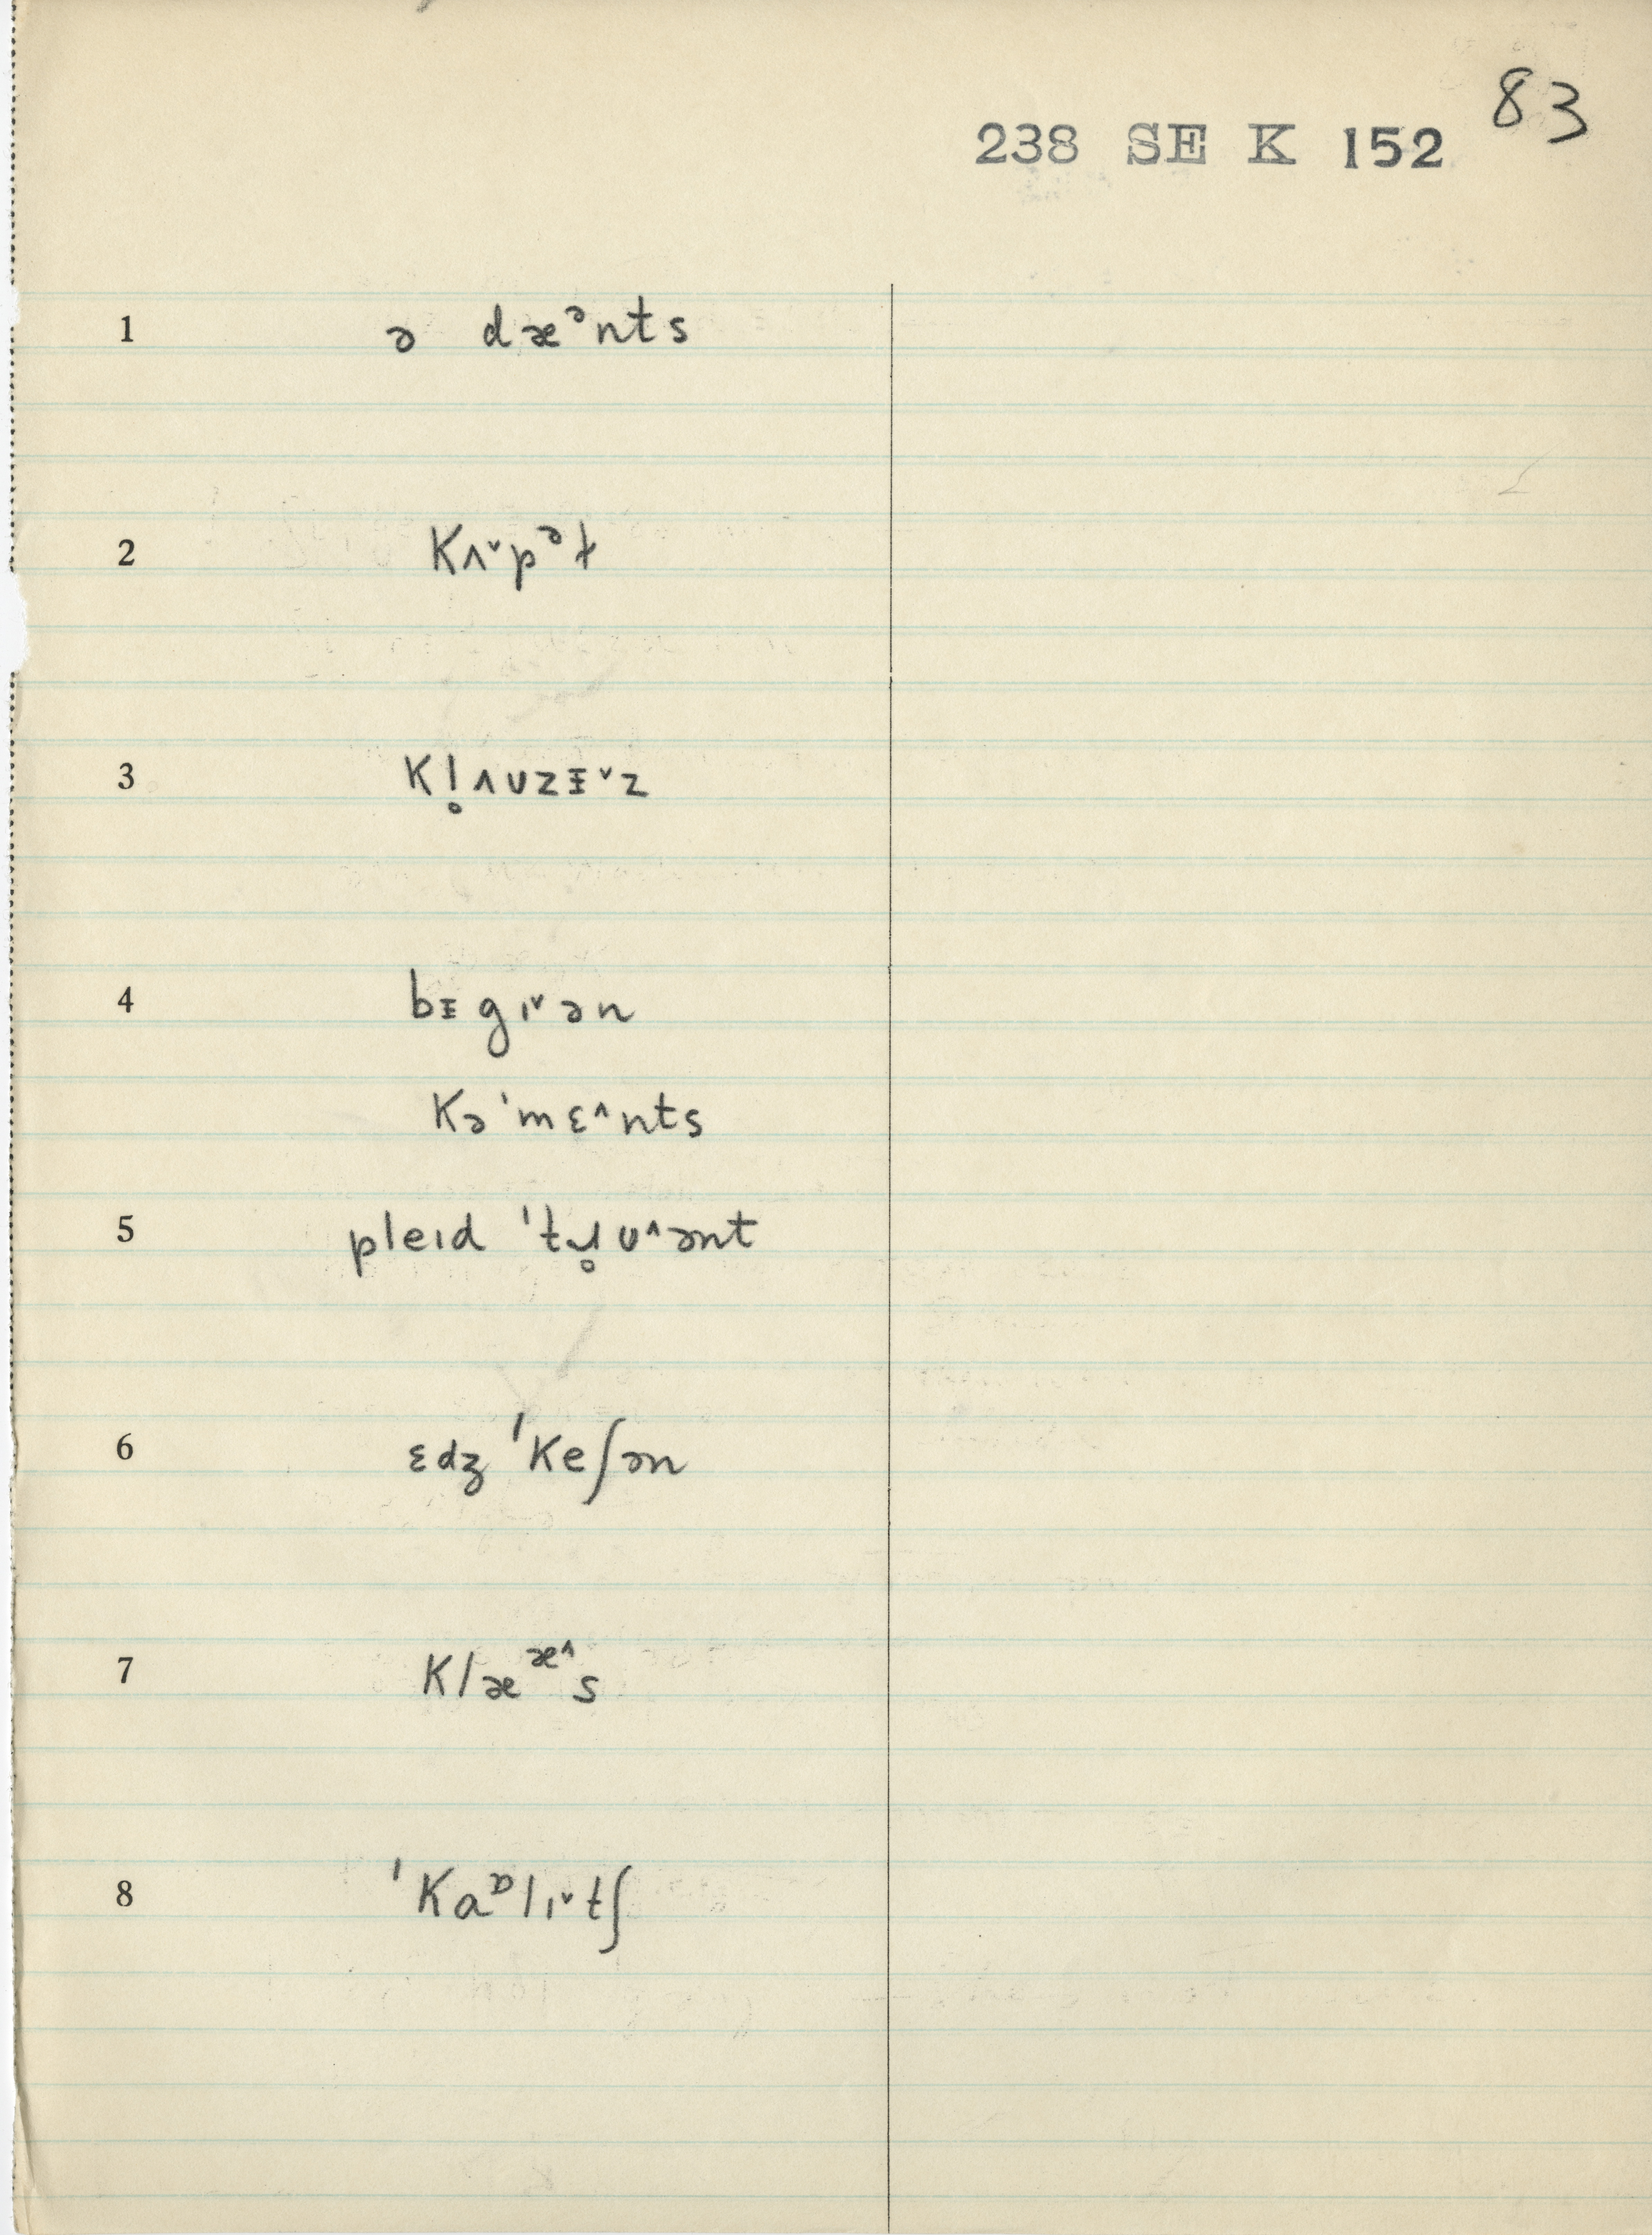 83
238 SE K 152
1 ə dæᵊnts
2 kʌ˅pᵊt
3 kl̥ʌʊzᵻ˅z
4 bᵻgɪ˅ən
kə'mɛ˄nts
5 pleɪd 'tɹ̥ʊ˄ənt
6 ɛdʒ'keʃən
7 klææ˄s
8 'kaᶛlɪ˅tʃ